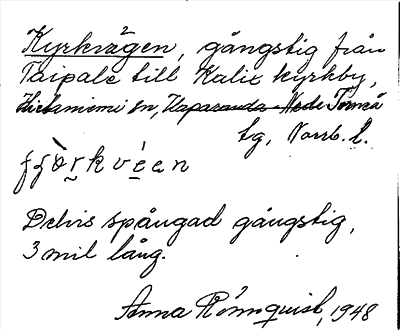 Kyrkvägen, gångstig från
Taipale till Kalix kyrkby,
Hietaniemi sn, Haparanda - Nedertorneå
tg, Norrb. l.
Delvis spångad gångstig,
3 mil lång.
Anna Rönnquist, 1948